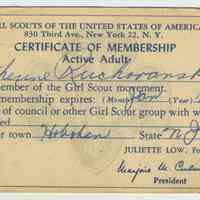 RL SCOUTS OF THE UNITED STATES OF AMERICA
830 Third Ave., New York 22, N. Y.
CERTIFICATE OF MEMBERSHIP
Active Adult
ember of the Girl Scout movement.
membership expires: (Month) Jan (Year)
of council or other Girl Scout group with w
ed
r town Hoboken State N.J.
JULIETTE LOW, Fo
Marjorie M. Culm
President